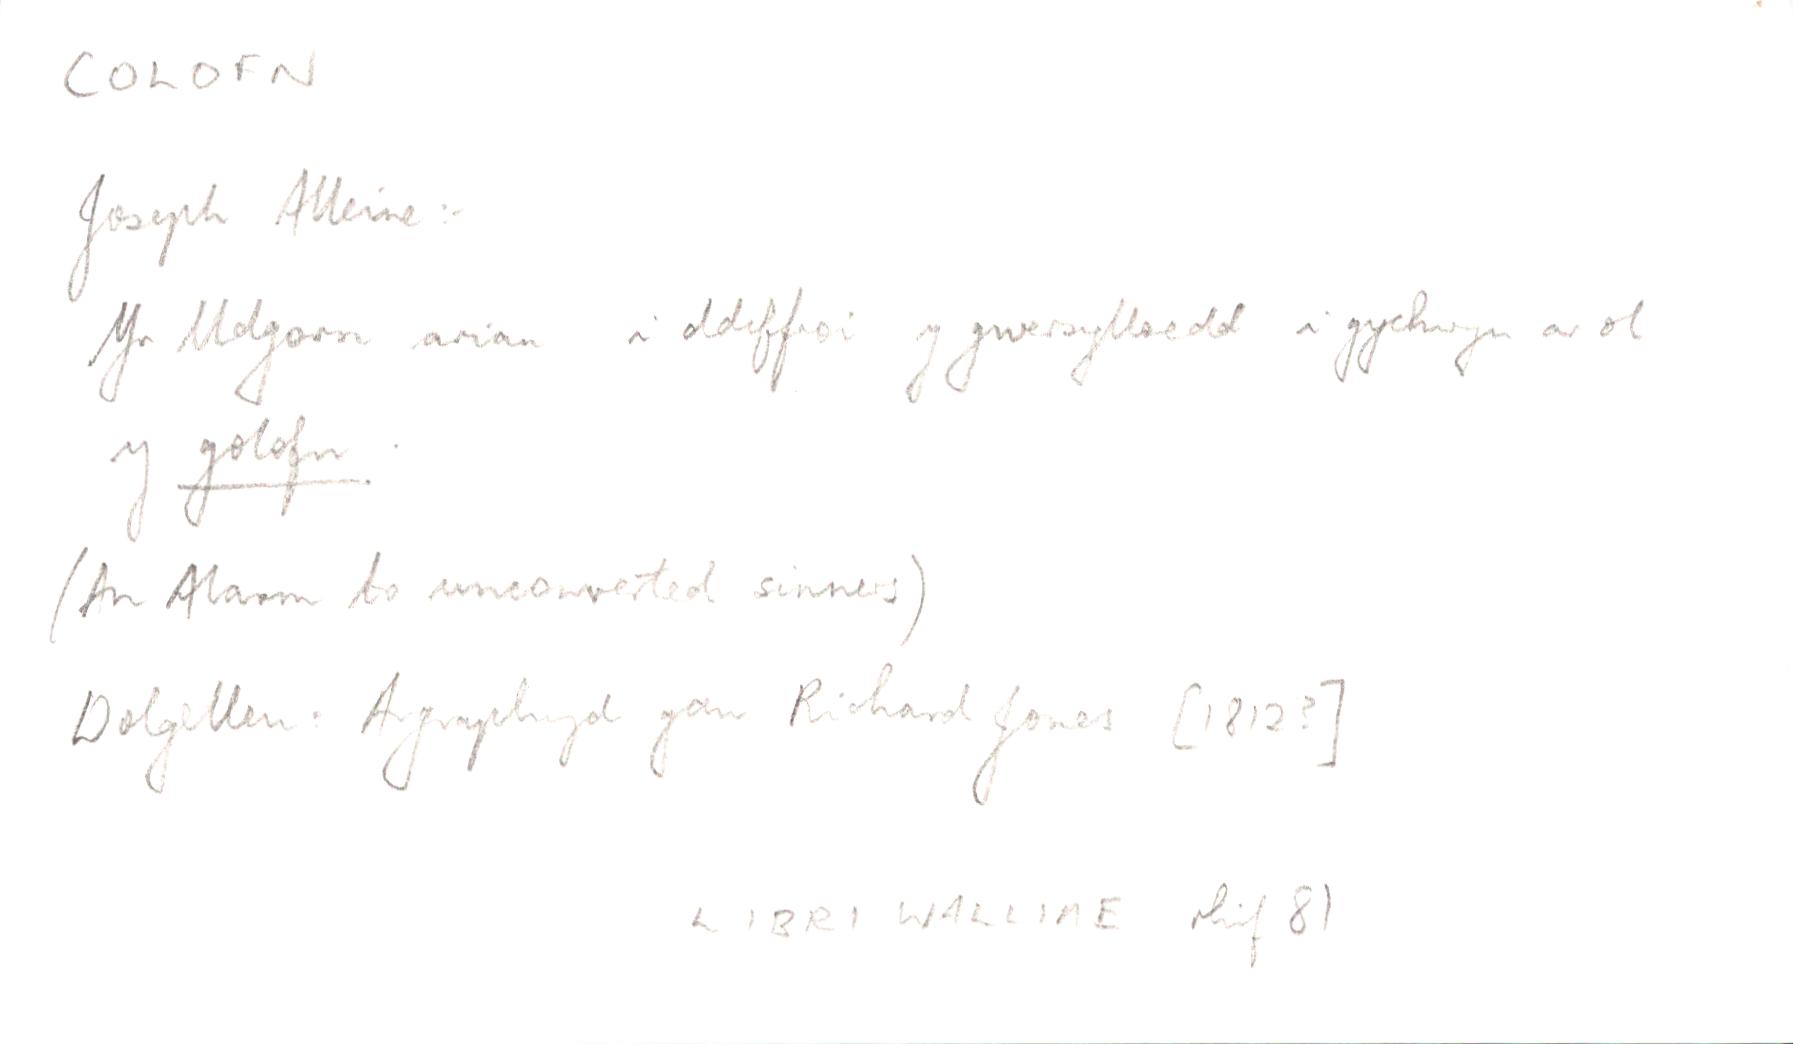 COLOFN
Joseph Alleine:-
Yr Udgorn arian i ddeffroi y gwersylloedd i gychwyn ar ol
y golofn.
(An Alarm to unconverted sinners)
Dolgelleu: Argraphwyd gan Richard Jones [1812?]
LIBRI WALLIAE rhif 81